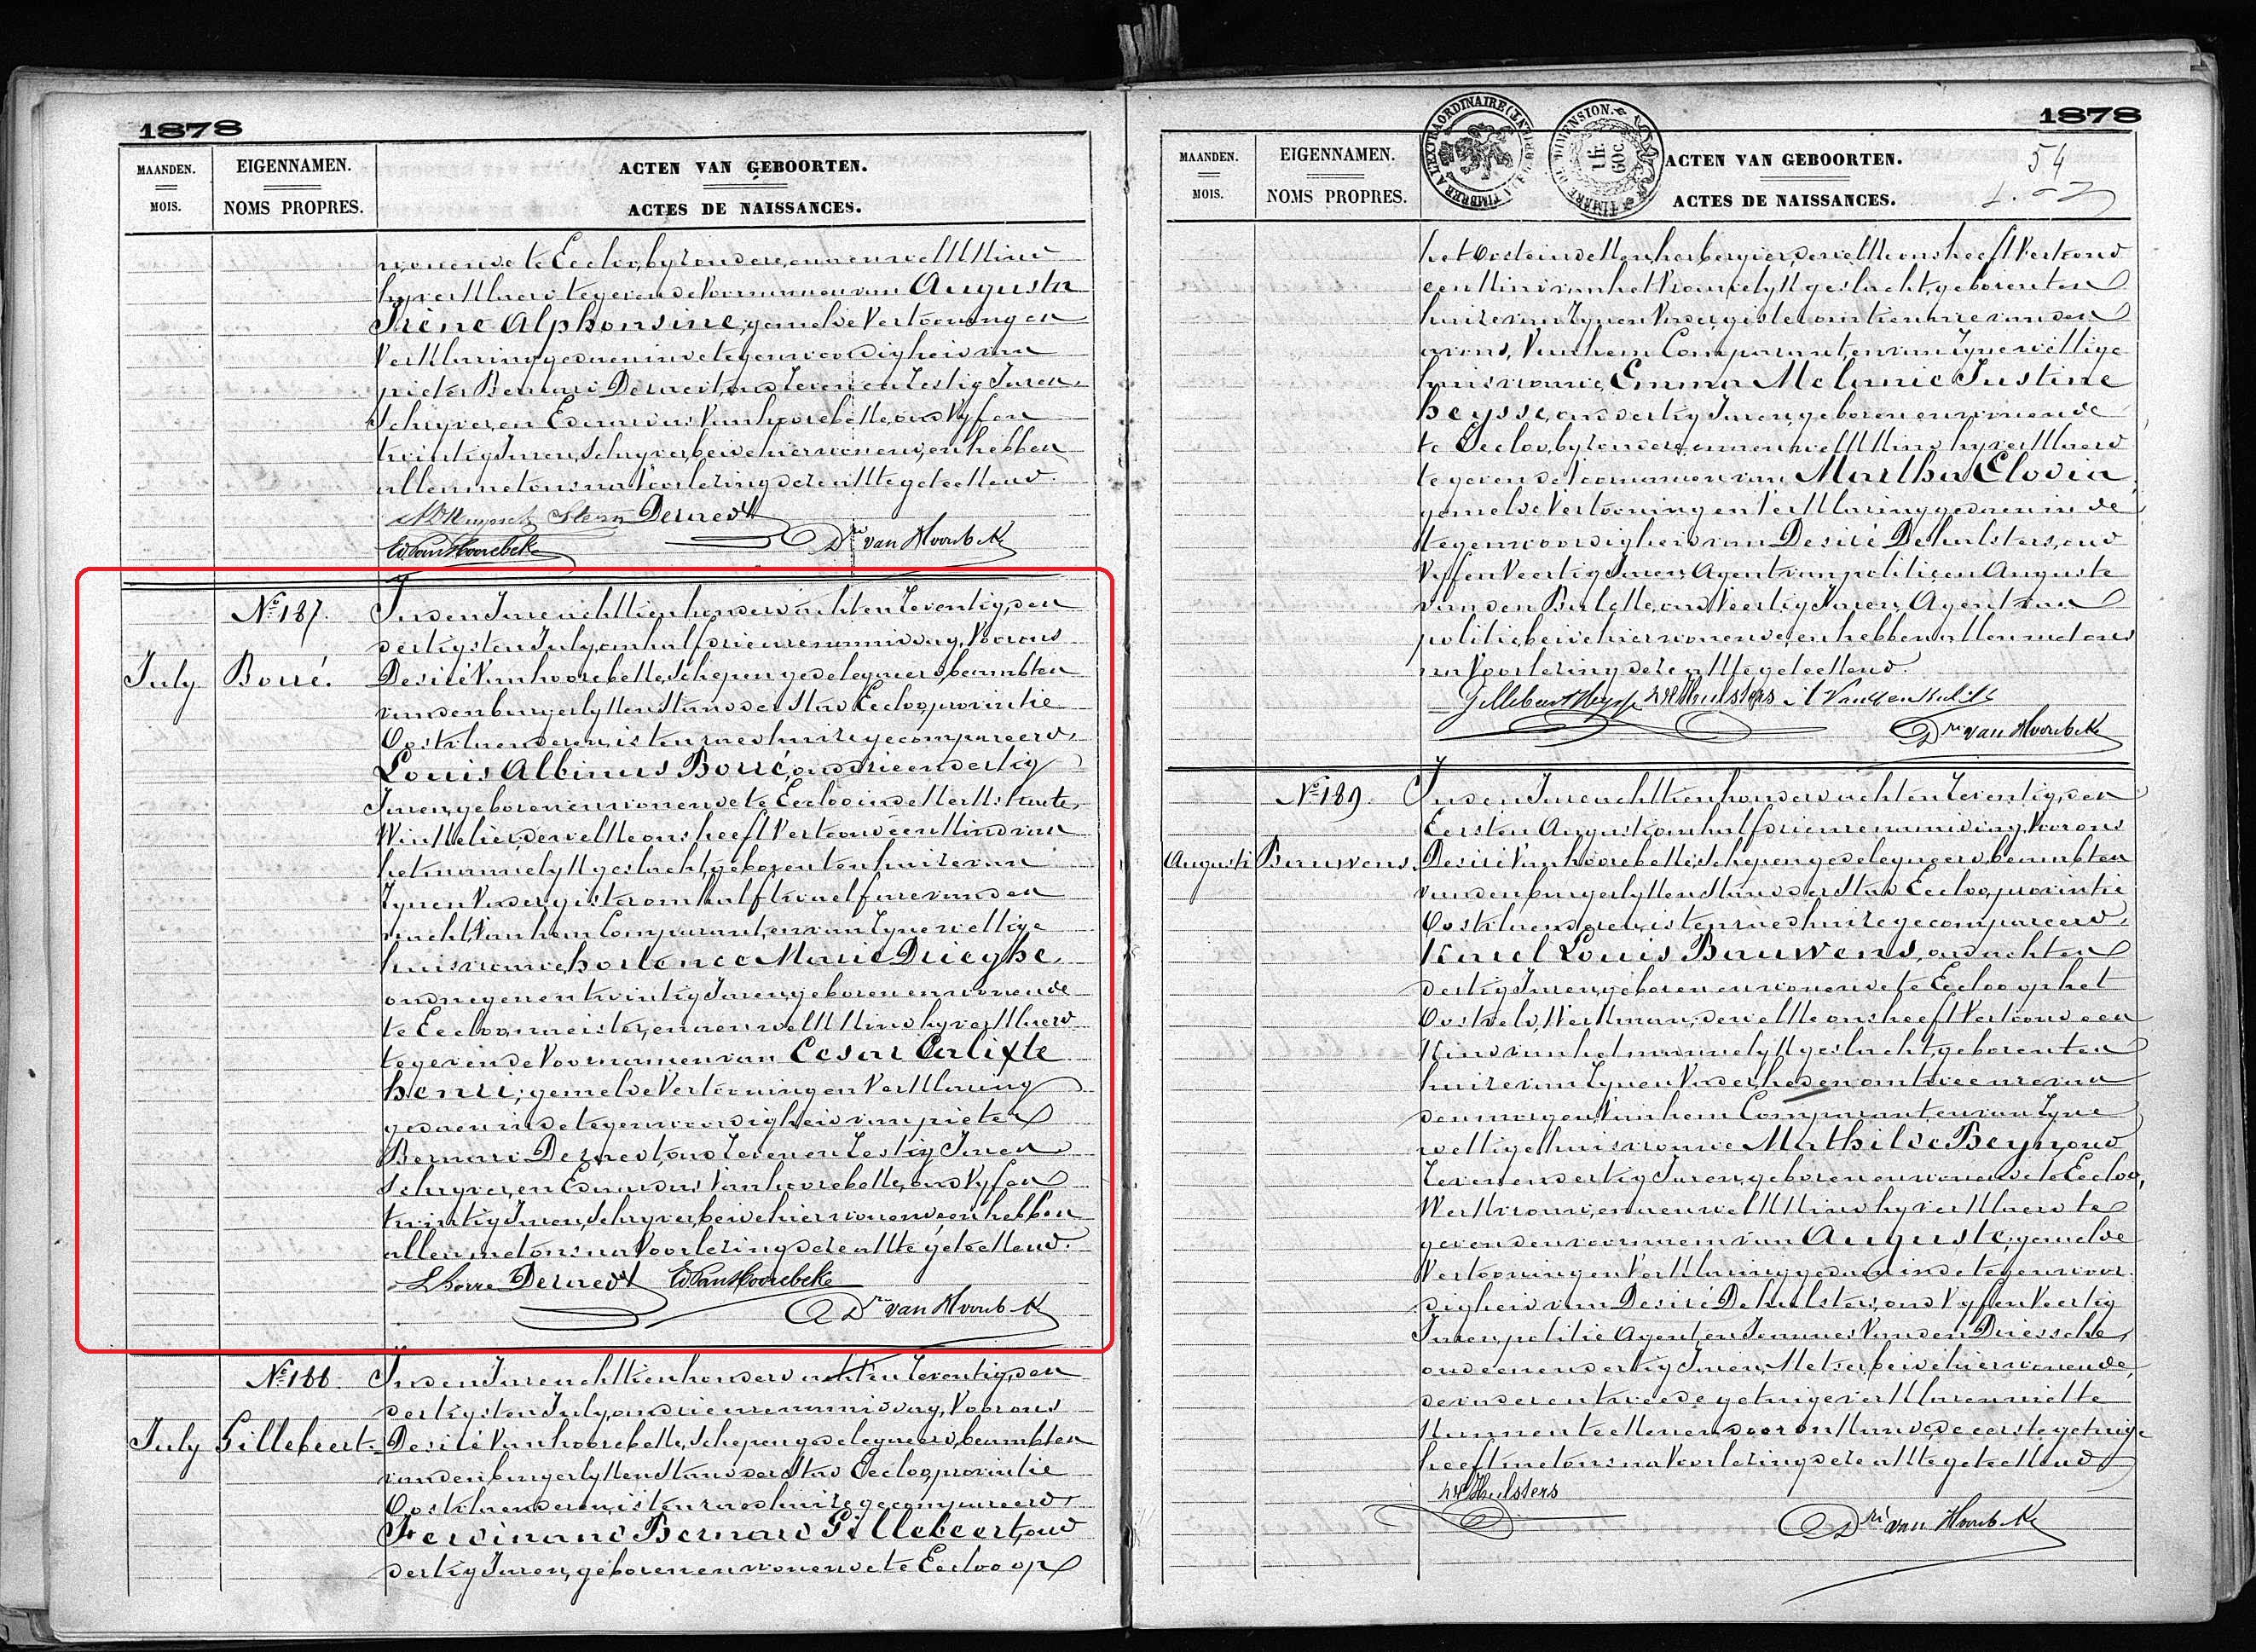 1878
MAANDEN.
MOIS.
EIGENNAMEN.
NOMS PROPRES.
ACTEN VAN GEBOORTEN.
ACTES DE NAISSANCES.
wonende te Eecloo, byzondere, en aen welk kind
hy verklaerd te geven de Voornamen van Augusta
Irène Alphonsine; gemelde Vertooning en
Verklaring gedaen in de tegenwoordigheid van
pieter Bernard Dernedt, oud Zeven en Zestig Jaren,
Schryver, en Eduardus Vanhoorebeke, oud Vyf en
twintig Jaren, Schryver, beide hier wonende, en hebben
allen met ons na Voorlezing dezen akte geteekend.
Dernedt
Ed Van Hoorebeke
Dré van Hoorebeke
Nº 187.
July
Borré.
In den Jare achttien honderd acht en Zeventig, den
dertigsten July, om half drie uren namiddag, Voor ons
Desiré Vanhoorebeke, Schepen gedelegueerd, beambten
van den burgerlyken Stand der Stad Eecloo, provintie
Oostvlaenderen, is ten raedhuize gecompareerd,
Louis Albinus Borré, oud drie en dertig
Jaren, geboren en wonende te Eecloo in de Kerkstraete,
Winkelier, dewelke ons heeft Vertoond een kind van
het mannelyk geslacht, geboren ten huize van
Zynen Vader, gister om half twaelf ure van den
nacht, Van hem Comparant, en van Zyne wettige
huisvrouwe, hortence Marie Drieghe,
oud negen en twintig Jaren, geboren en wonende
te Eecloo, en aen welk kind hy verklaerd
te geven de Voornamen van Cesar Calixte
henri; gemelde Vertooning en Verklaring
gedaen in de tegenwoordigheid van pieter
Bernard Dernedt, oud Zeven en Zestig Jaren
Schryver, en Eduardus Vanhoorebeke, oud Vyf en
twintig Jaren, Schryver, beide hier wonende, en hebben
allen met ons na Voorlezing dezen akte geteekend.
L Borre Dernedt Ed Van Hoorebeke
Dré van Hoorebeke
Nº 188.
July
Gillebeert.
In den Jare achttien honderd acht en Zeventig, den
dertigsten July, om drie uren namiddag, Voor ons
Desiré Vanhoorebeke, Schepen gedelegueerd, beambten
van den burgerlyken Stand der Stad Eecloo, provintie
Oostvlaenderen, is ten raedhuize gecompareerd,
Ferdinand Bernard Gillebeert, oud
dertig Jaren, geboren en wonende te Eecloo op
1878
54
MAANDEN.
MOIS.
EIGENNAMEN.
NOMS PROPRES.
TIMBRE A L'EXTRAORDINAIRE
TIMBRE DE DIMENSION.
1 fr. 60 c.
ACTEN VAN GEBOORTEN.
ACTES DE NAISSANCES.
het Oosteindeken, herbergier, dewelke ons heeft Vertoond
een kind van het Vrouwelyk geslacht, geboren ten
huize van Zynen Vader, gister om tien ure van den
avond, Van hem Comparant, en van Zyne wettige
huisvrouwe, Emma Melanie Justine
heysse, oud dertig Jaren, geboren en wonende
te Eecloo, byzondere, en aen welk kind hy verklaerd
te geven de Voornamen van Martha Elodia,
gemelde Vertooning en Verklaring gedaen in de
tegenwoordigheid van Desiré Dehulsters, oud
Vyf en Veertig Jaren, Agent van politie, en Auguste
van den Bulcke, oud Veertig Jaren, Agent van
politie, beide hier wonende, en hebben allen met ons
na Voorlezing dezen akte geteekend
Gillebeert Heysse DHulsters
Dré van Hoorebeke
Nº 189.
Augusti
Bauwens.
In den Jare achttien honderd acht en Zeventig, den
Eersten Augusti, om half drie uren namiddag, Voor ons
Desiré Vanhoorebeke, Schepen gedelegueerd, beambten
van den burgerlyken Stand der Stad Eecloo, provintie
Oostvlaenderen, is ten raedhuize gecompareerd,
Karel Louis Bauwens, oud acht en
dertig Jaren, geboren en wonende te Eecloo op het
Oostveld, Werkman, dewelke ons heeft Vertoond een
Kind van het mannelyk geslacht, geboren ten
huize van Zynen Vader, heden om drie ure van
den morgen, Van hem Comparant en van Zyne
wettige huisvrouwe Mathilde Beyn, oud
Zeven en dertig Jaren, geboren en wonende te Eecloo,
Werkvrouw, en aen welk kind hy verklaerd te
geven den voornaem van Auguste; gemelde
Vertooning en Verklaring gedaen in de tegenwoor-
digheid van Desiré Dehulsters, oud Vyf en Veertig
Jaren, politie Agent, en Joannes Van den Driessche,
oud een en dertig Jaren, Metser, beide hier wonende,
de vader en tweede getuige verklaren niet te
kunnen teekenen door onkunde, de eerste getuige
heeft met ons na Voorlezing dezen akte geteekend
DHulsters
Dré van Hoorebeke